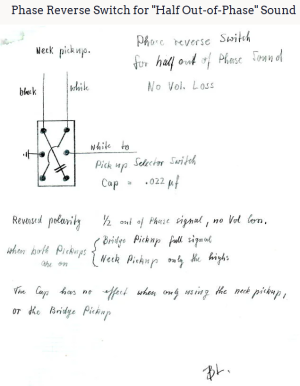 Phase Reverse Switch for "Half Out-of-Phase" Sound
Phase reverse Switch
for half out of Phase Sound
Neck pickups.
No Vol. Loss
black
white
white to
Pick up Selector Switch
Cap = .022 µf
Reversed polarity ½ out of Phase signal, no Vol loss.
when both Pickups are on
Bridge Pickup full signal
Neck Pickup only the highs
The Cap has no effect when only using the neck pickup,
or the Bridge Pickup